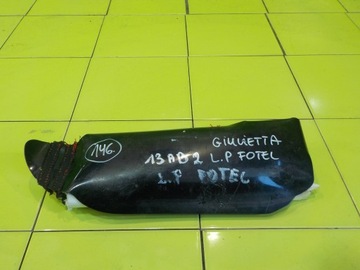 146.
GIULIETTA
13AB2 L.P FOTEL
L.P FOTEL